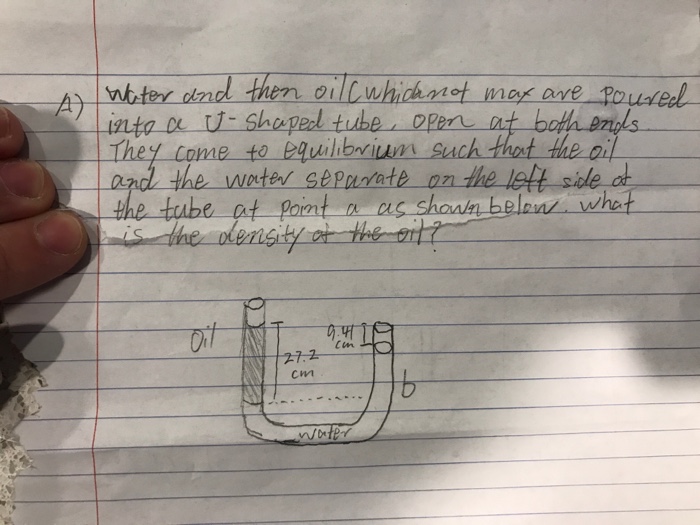 A) Water and then oil (which not max are poured
into a U-shaped tube, open at both ends.
They come to equilibrium such that the oil
and the water separate on the left side of
the tube at point a as shown below. What
is the density of the oil?
Oil
9.41
cm
27.2
cm
b
water